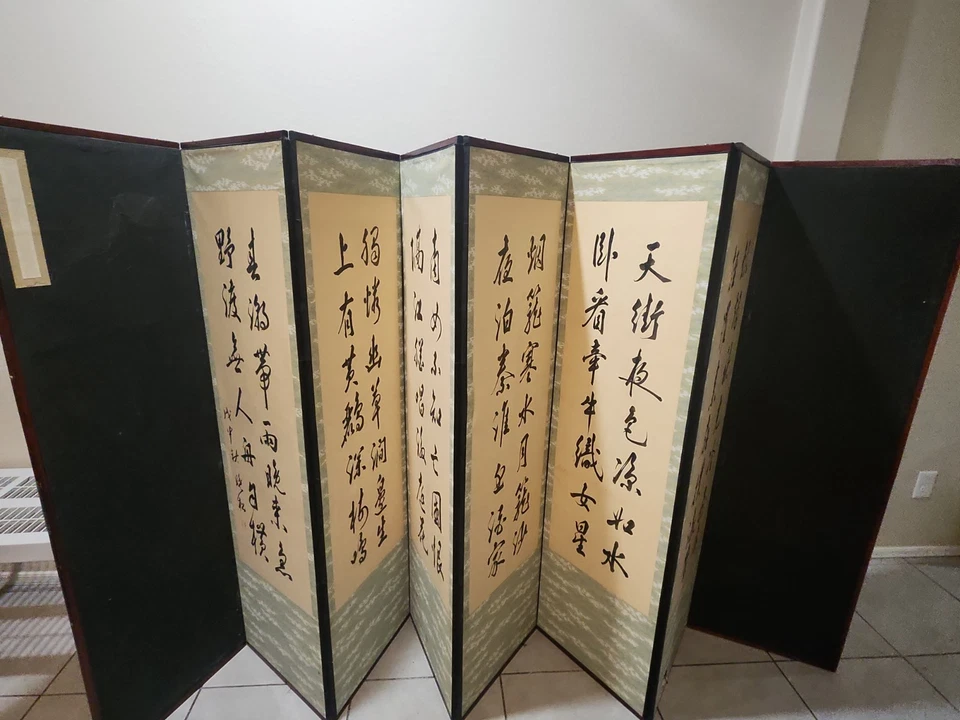 天街夜色凉如水
卧看牽牛織女星
烟籠寒水月籠沙
夜泊秦淮近酒家
商女不知亡國恨
隔江猶唱後庭花
獨憐幽草澗邊生
上有黃鸝深樹鳴
春潮帶雨晚來急
野渡無人舟自橫
戊申秋